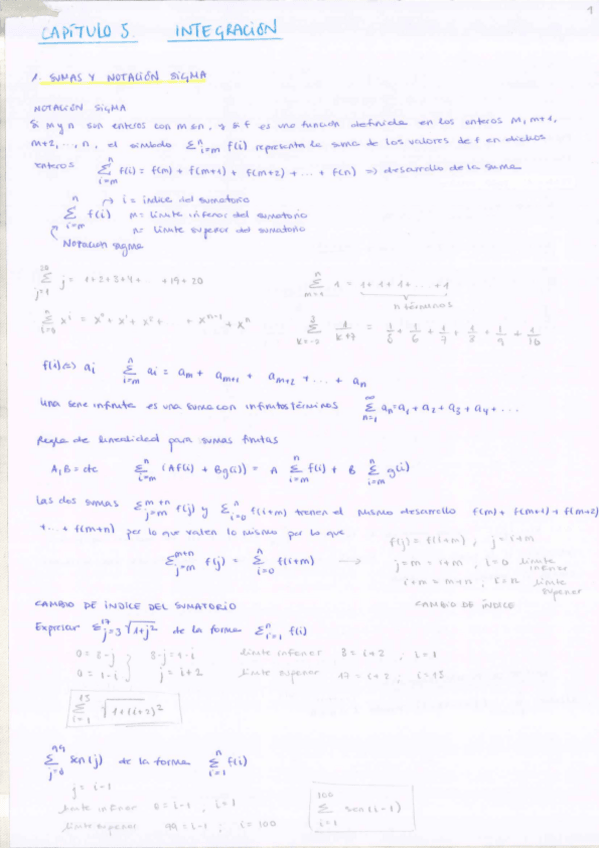 1
CAPÍTULO 5. INTEGRACIÓN
1. SUMAS Y NOTACIÓN SIGMA
NOTACIÓN SIGMA
Si m y n son enteros con m≤n, y si f es una función definida en los enteros m, m+1,
m+2, ..., n, el símbolo Σⁿᵢ₌ₘ f(i) representa la suma de los valores de f en dichos
enteros Σⁿᵢ₌ₘ f(i) = f(m) + f(m+1) + f(m+2) + ... + f(n) => desarrollo de la suma
Σⁿᵢ₌ₘ f(i) → i = índice del sumatorio
m = límite inferior del sumatorio
n = límite superior del sumatorio
Notación sigma
Σ²⁰ⱼ₌₁ j = 1+2+3+4+ ... +19+20 Σⁿₘ₌₁ 1 = 1+1+1+...+1
n términos
Σⁿᵢ₌₀ xⁱ = x⁰ + x¹ + x² + ... + xⁿ⁻¹ + xⁿ Σ³ₖ₌₋₂ 1/(k+7) = 1/5 + 1/6 + 1/7 + 1/8 + 1/9 + 1/10
f(i) => aᵢ Σⁿᵢ₌ₘ aᵢ = aₘ + aₘ₊₁ + aₘ₊₂ + ... + aₙ
Una serie infinita es una suma con infinitos términos Σ^∞ₙ₌₁ aₙ = a₁ + a₂ + a₃ + a₄ + ...
Regla de linealidad para sumas finitas
A, B = cte Σⁿᵢ₌ₘ (Af(i) + Bg(i)) = A Σⁿᵢ₌ₘ f(i) + B Σⁿᵢ₌ₘ g(i)
Las dos sumas Σᵐ⁺ⁿⱼ₌ₘ f(j) y Σⁿᵢ₌₀ f(i+m) tienen el mismo desarrollo f(m) + f(m+1) + f(m+2)
+... + f(m+n) por lo que valen lo mismo por lo que
Σᵐ⁺ⁿⱼ₌ₘ f(j) = Σⁿᵢ₌₀ f(i+m) →
f(j) = f(i+m), j = i+m
j=m = i+m, i=0 límite inferior
i+m = m+n, i=n límite superior
CAMBIO DE ÍNDICE
CAMBIO DE ÍNDICE DEL SUMATORIO
Expresar Σ¹⁷ⱼ₌₃ √(1+j²) de la forma Σⁿᵢ₌₁ f(i)
a = 3-j 3-j = 1-i límite inferior 3 = i+2, i=1
a = 1-i j = i+2 límite superior 17 = i+2, i=15
Σ¹⁵ᵢ₌₁ √(1+(i+2)²)
Σ⁹⁹ⱼ₌₀ sen(j) de la forma Σⁿᵢ₌₁ f(i)
j = i-1
límite inferior 0 = i-1, i=1
límite superior 99 = i-1, i=100
Σ¹⁰⁰ᵢ₌₁ sen(i-1)